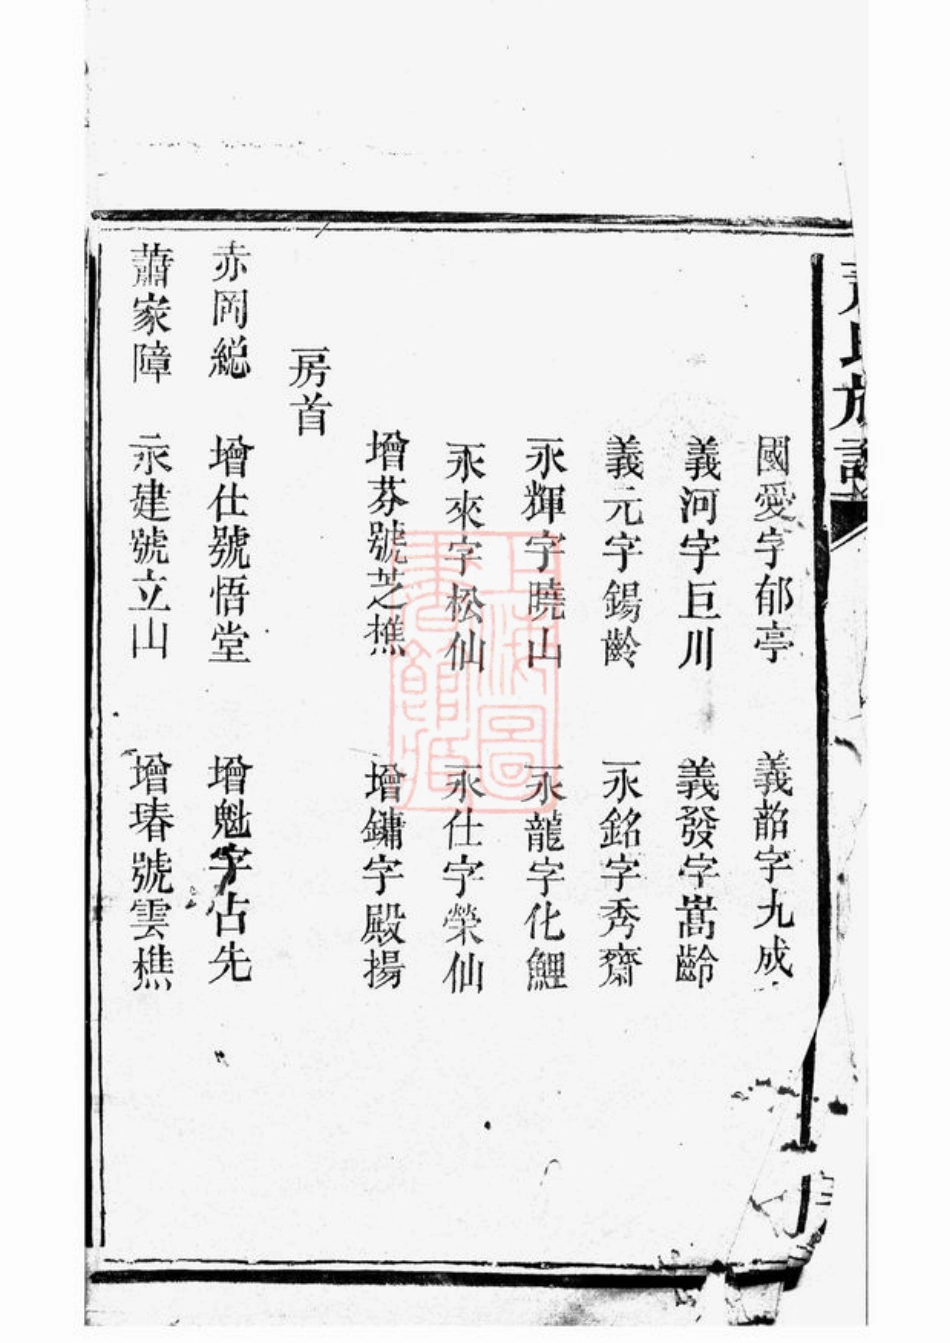 氏族譜
國愛字郁亭 義韶字九成
義河字巨川 義發字嵩齡
義元字錫齡 永銘字秀齋
永輝字曉山 永龍字化鯉
永來字松仙 永仕字榮仙
增芬號芝樵 增鏞字殿揚
房首
赤岡総 增仕號悟堂 增魁字占先
蕭家障 永建號立山 增瑃號雲樵
上海圖書館藏